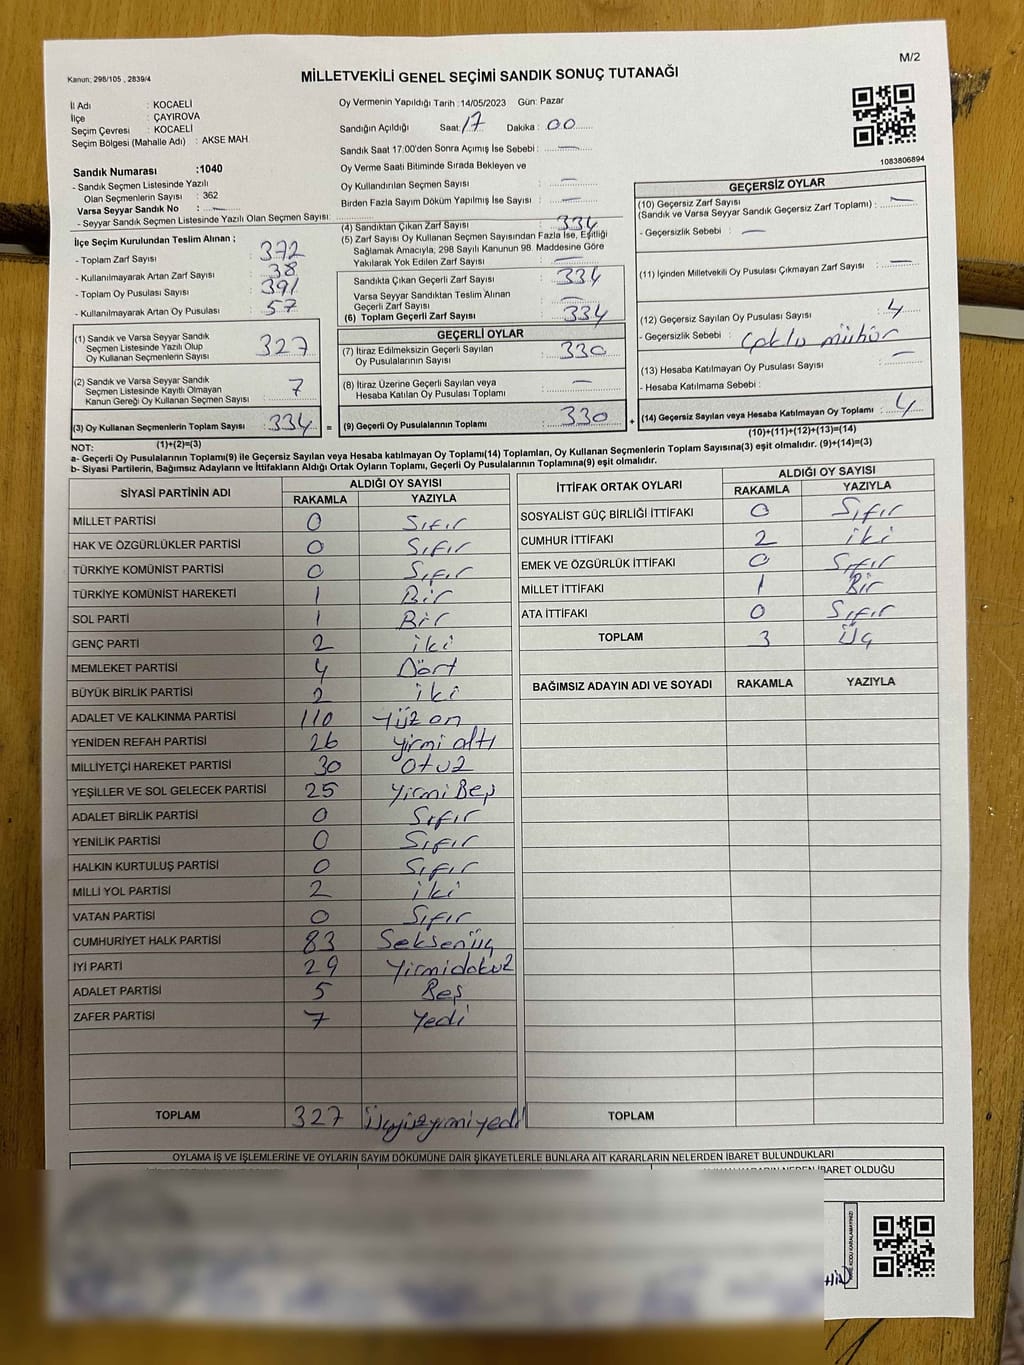 M/2
Kanun; 298/105 , 2839/4
MİLLETVEKİLİ GENEL SEÇİMİ SANDIK SONUÇ TUTANAĞI
İl Adı : KOCAELİ
İlçe : ÇAYIROVA
Seçim Çevresi : KOCAELİ
Seçim Bölgesi (Mahalle Adı) : AKSE MAH
Sandık Numarası :1040
- Sandık Seçmen Listesinde Yazılı
Olan Seçmenlerin Sayısı : 362
Varsa Seyyar Sandık No : —
- Seyyar Sandık Seçmen Listesinde Yazılı Olan Seçmen Sayısı:
Oy Vermenin Yapıldığı Tarih :14/05/2023 Gün: Pazar
Sandığın Açıldığı Saat: 17 Dakika : 00
Sandık Saat 17:00'den Sonra Açımış İse Sebebi : —
Oy Verme Saati Bitiminde Sırada Bekleyen ve
Oy Kullandırılan Seçmen Sayısı : —
Birden Fazla Sayım Döküm Yapılmış İse Sayısı : —
1083806894
İlçe Seçim Kurulundan Teslim Alınan ;
- Toplam Zarf Sayısı : 372
- Kullanılmayarak Artan Zarf Sayısı : 38
- Toplam Oy Pusulası Sayısı : 391
- Kullanılmayarak Artan Oy Pusulası : 57
(1) Sandık ve Varsa Seyyar Sandık
Seçmen Listesinde Yazılı Olup
Oy Kullanan Seçmenlerin Sayısı : 327
(2) Sandık ve Varsa Seyyar Sandık
Seçmen Listesinde Kayıtlı Olmayan
Kanun Gereği Oy Kullanan Seçmen Sayısı : 7
(3) Oy Kullanan Seçmenlerin Toplam Sayısı : 334 =
(1)+(2)=(3)
(4) Sandıktan Çıkan Zarf Sayısı : 334
(5) Zarf Sayısı Oy Kullanan Seçmen Sayısından Fazla İse, Eşitliği
Sağlamak Amacıyla; 298 Sayılı Kanunun 98. Maddesine Göre
Yakılarak Yok Edilen Zarf Sayısı : —
Sandıkta Çıkan Geçerli Zarf Sayısı : 334
Varsa Seyyar Sandıktan Teslim Alınan
Geçerli Zarf Sayısı : —
(6) Toplam Geçerli Zarf Sayısı : 334
GEÇERLİ OYLAR
(7) İtiraz Edilmeksizin Geçerli Sayılan
Oy Pusulalarının Sayısı : 330
(8) İtiraz Üzerine Geçerli Sayılan veya
Hesaba Katılan Oy Pusulası Toplamı : —
(9) Geçerli Oy Pusulalarının Toplamı : 330 +
GEÇERSİZ OYLAR
(10) Geçersiz Zarf Sayısı
(Sandık ve Varsa Seyyar Sandık Geçersiz Zarf Toplamı) : —
- Geçersizlik Sebebi : —
(11) İçinden Milletvekili Oy Pusulası Çıkmayan Zarf Sayısı : —
(12) Geçersiz Sayılan Oy Pusulası Sayısı : 4
- Geçersizlik Sebebi : Çoklu mühür
(13) Hesaba Katılmayan Oy Pusulası Sayısı : —
- Hesaba Katılmama Sebebi :
(14) Geçersiz Sayılan veya Hesaba Katılmayan Oy Toplamı : 4
(10)+(11)+(12)+(13)=(14)
NOT:
a- Geçerli Oy Pusulalarının Toplamı(9) ile Geçersiz Sayılan veya Hesaba katılmayan Oy Toplamı(14) Toplamları, Oy Kullanan Seçmenlerin Toplam Sayısına(3) eşit olmalıdır. (9)+(14)=(3)
b- Siyasi Partilerin, Bağımsız Adayların ve İttifakların Aldığı Ortak Oyların Toplamı, Geçerli Oy Pusulalarının Toplamına(9) eşit olmalıdır.
SİYASİ PARTİNİN ADI ALDIĞI OY SAYISI
RAKAMLA YAZIYLA
MİLLET PARTİSİ 0 Sıfır
HAK VE ÖZGÜRLÜKLER PARTİSİ 0 Sıfır
TÜRKİYE KOMÜNİST PARTİSİ 0 Sıfır
TÜRKİYE KOMÜNİST HAREKETİ 1 Bir
SOL PARTİ 1 Bir
GENÇ PARTİ 2 iki
MEMLEKET PARTİSİ 4 Dört
BÜYÜK BİRLİK PARTİSİ 2 iki
ADALET VE KALKINMA PARTİSİ 110 Yüz on
YENİDEN REFAH PARTİSİ 26 Yirmi altı
MİLLİYETÇİ HAREKET PARTİSİ 30 Otuz
YEŞİLLER VE SOL GELECEK PARTİSİ 25 Yirmi Beş
ADALET BİRLİK PARTİSİ 0 Sıfır
YENİLİK PARTİSİ 0 Sıfır
HALKIN KURTULUŞ PARTİSİ 0 Sıfır
MİLLİ YOL PARTİSİ 2 iki
VATAN PARTİSİ 0 Sıfır
CUMHURİYET HALK PARTİSİ 83 Seksenüç
İYİ PARTİ 29 Yirmidokuz
ADALET PARTİSİ 5 Beş
ZAFER PARTİSİ 7 Yedi
TOPLAM 327 Üçyüzyirmiyedi
İTTİFAK ORTAK OYLARI ALDIĞI OY SAYISI
RAKAMLA YAZIYLA
SOSYALİST GÜÇ BİRLİĞİ İTTİFAKI 0 Sıfır
CUMHUR İTTİFAKI 2 iki
EMEK VE ÖZGÜRLÜK İTTİFAKI 0 Sıfır
MİLLET İTTİFAKI 1 Bir
ATA İTTİFAKI 0 Sıfır
TOPLAM 3 Üç
BAĞIMSIZ ADAYIN ADI VE SOYADI RAKAMLA YAZIYLA
TOPLAM
OYLAMA İŞ VE İŞLEMLERİNE VE OYLARIN SAYIM DÖKÜMÜNE DAİR ŞİKAYETLERLE BUNLARA AİT KARARLARIN NELERDEN İBARET BULUNDUKLARI
İBARET OLDUĞU